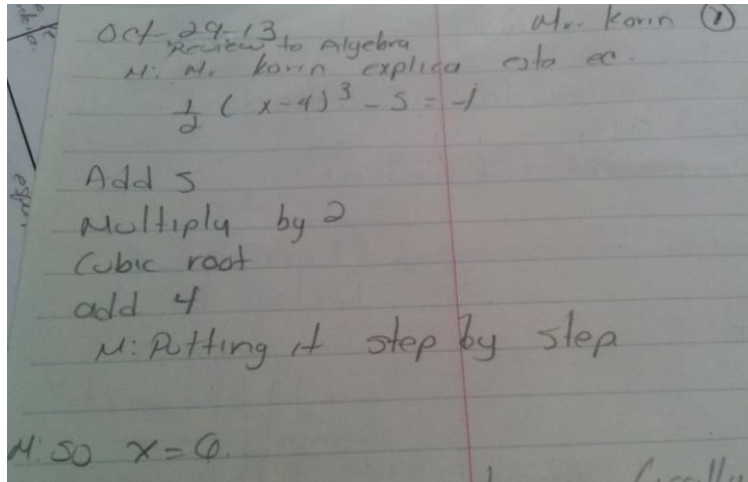 Oct-29-13 Mr. Korin 1
Review to Algebra
M: Mr. Korin explica esta ec.
1/2 (x-4)³ - 5 = -1
Add 5
Multiply by 2
Cubic root
add 4
M: Putting it step by step
M: so x = 6.